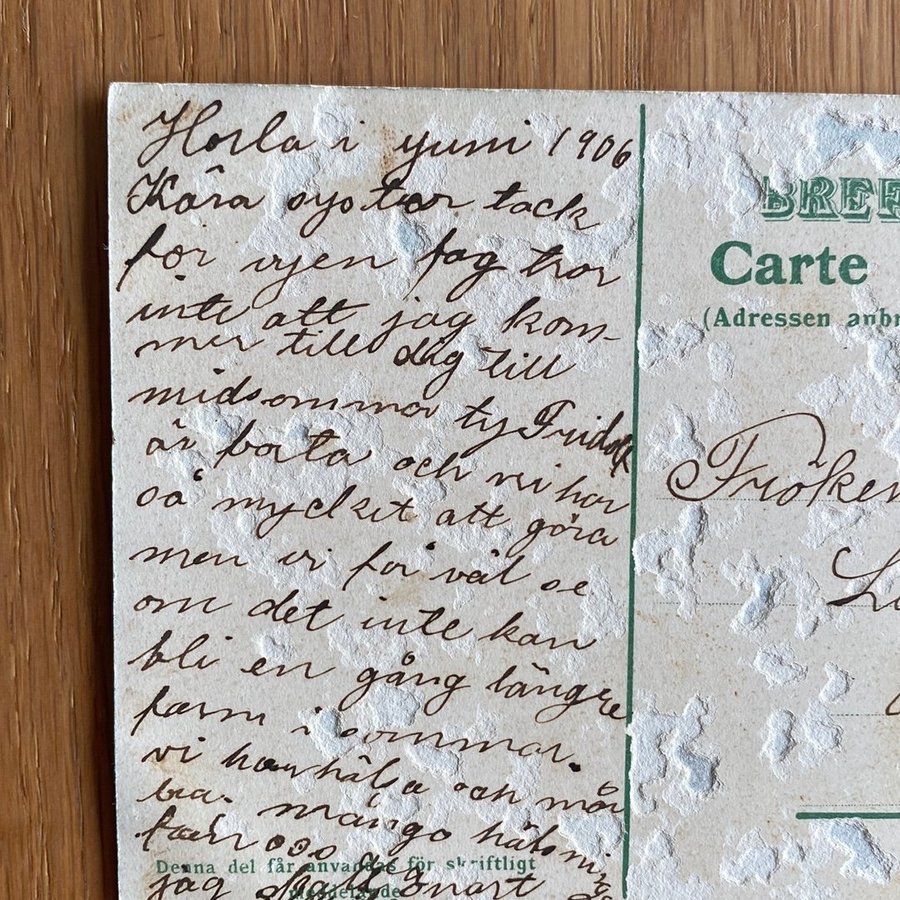 Horla i yuni 1906
Kära syster tack
för vyen Jag tror
inte att jag kom-
mer till dig till
midsommar ty Fridolf
är borta och vi har
så mycket att göra
men vi får väl se
om det inte kan
bli en gång längre
fram i sommar.
vi har hälsa och mår
bra. många hälsnin
från oss
jag snart
Denna del får användas för skriftligt
meddelande
BREF
Carte
(Adressen anbr
Fröken